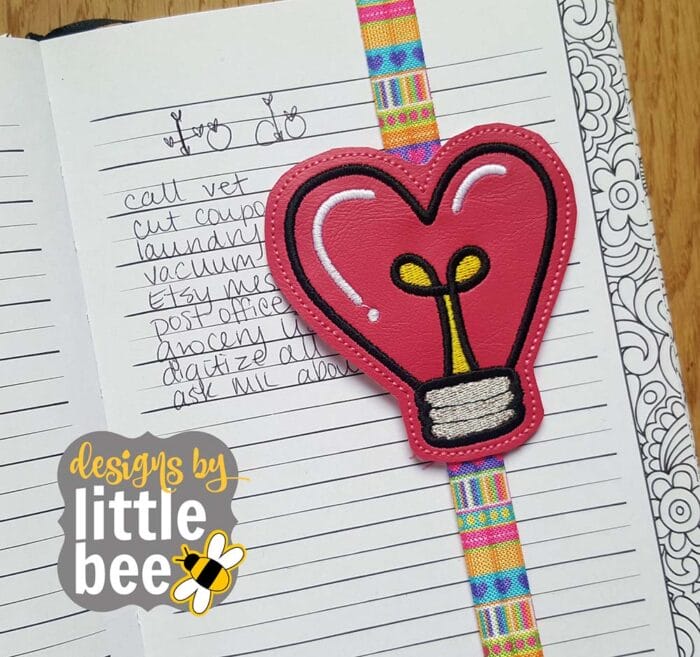 to do
call vet
cut coupo
laundry
vacuum
Etsy mes
post office
grocery
digitize
ask MIL abou
designs by
little
bee